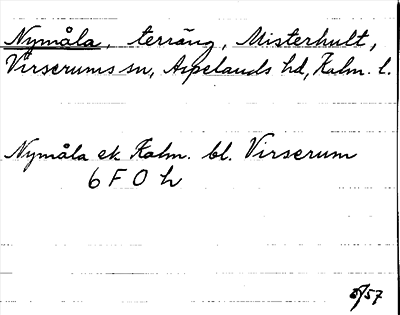 Nymåla, terräng, Misterhult,
Virserums sn, Aspelands hd, Kalm. l.
Nymåla ek Kalm. bl. Virserum
6 F 0 h
5/57